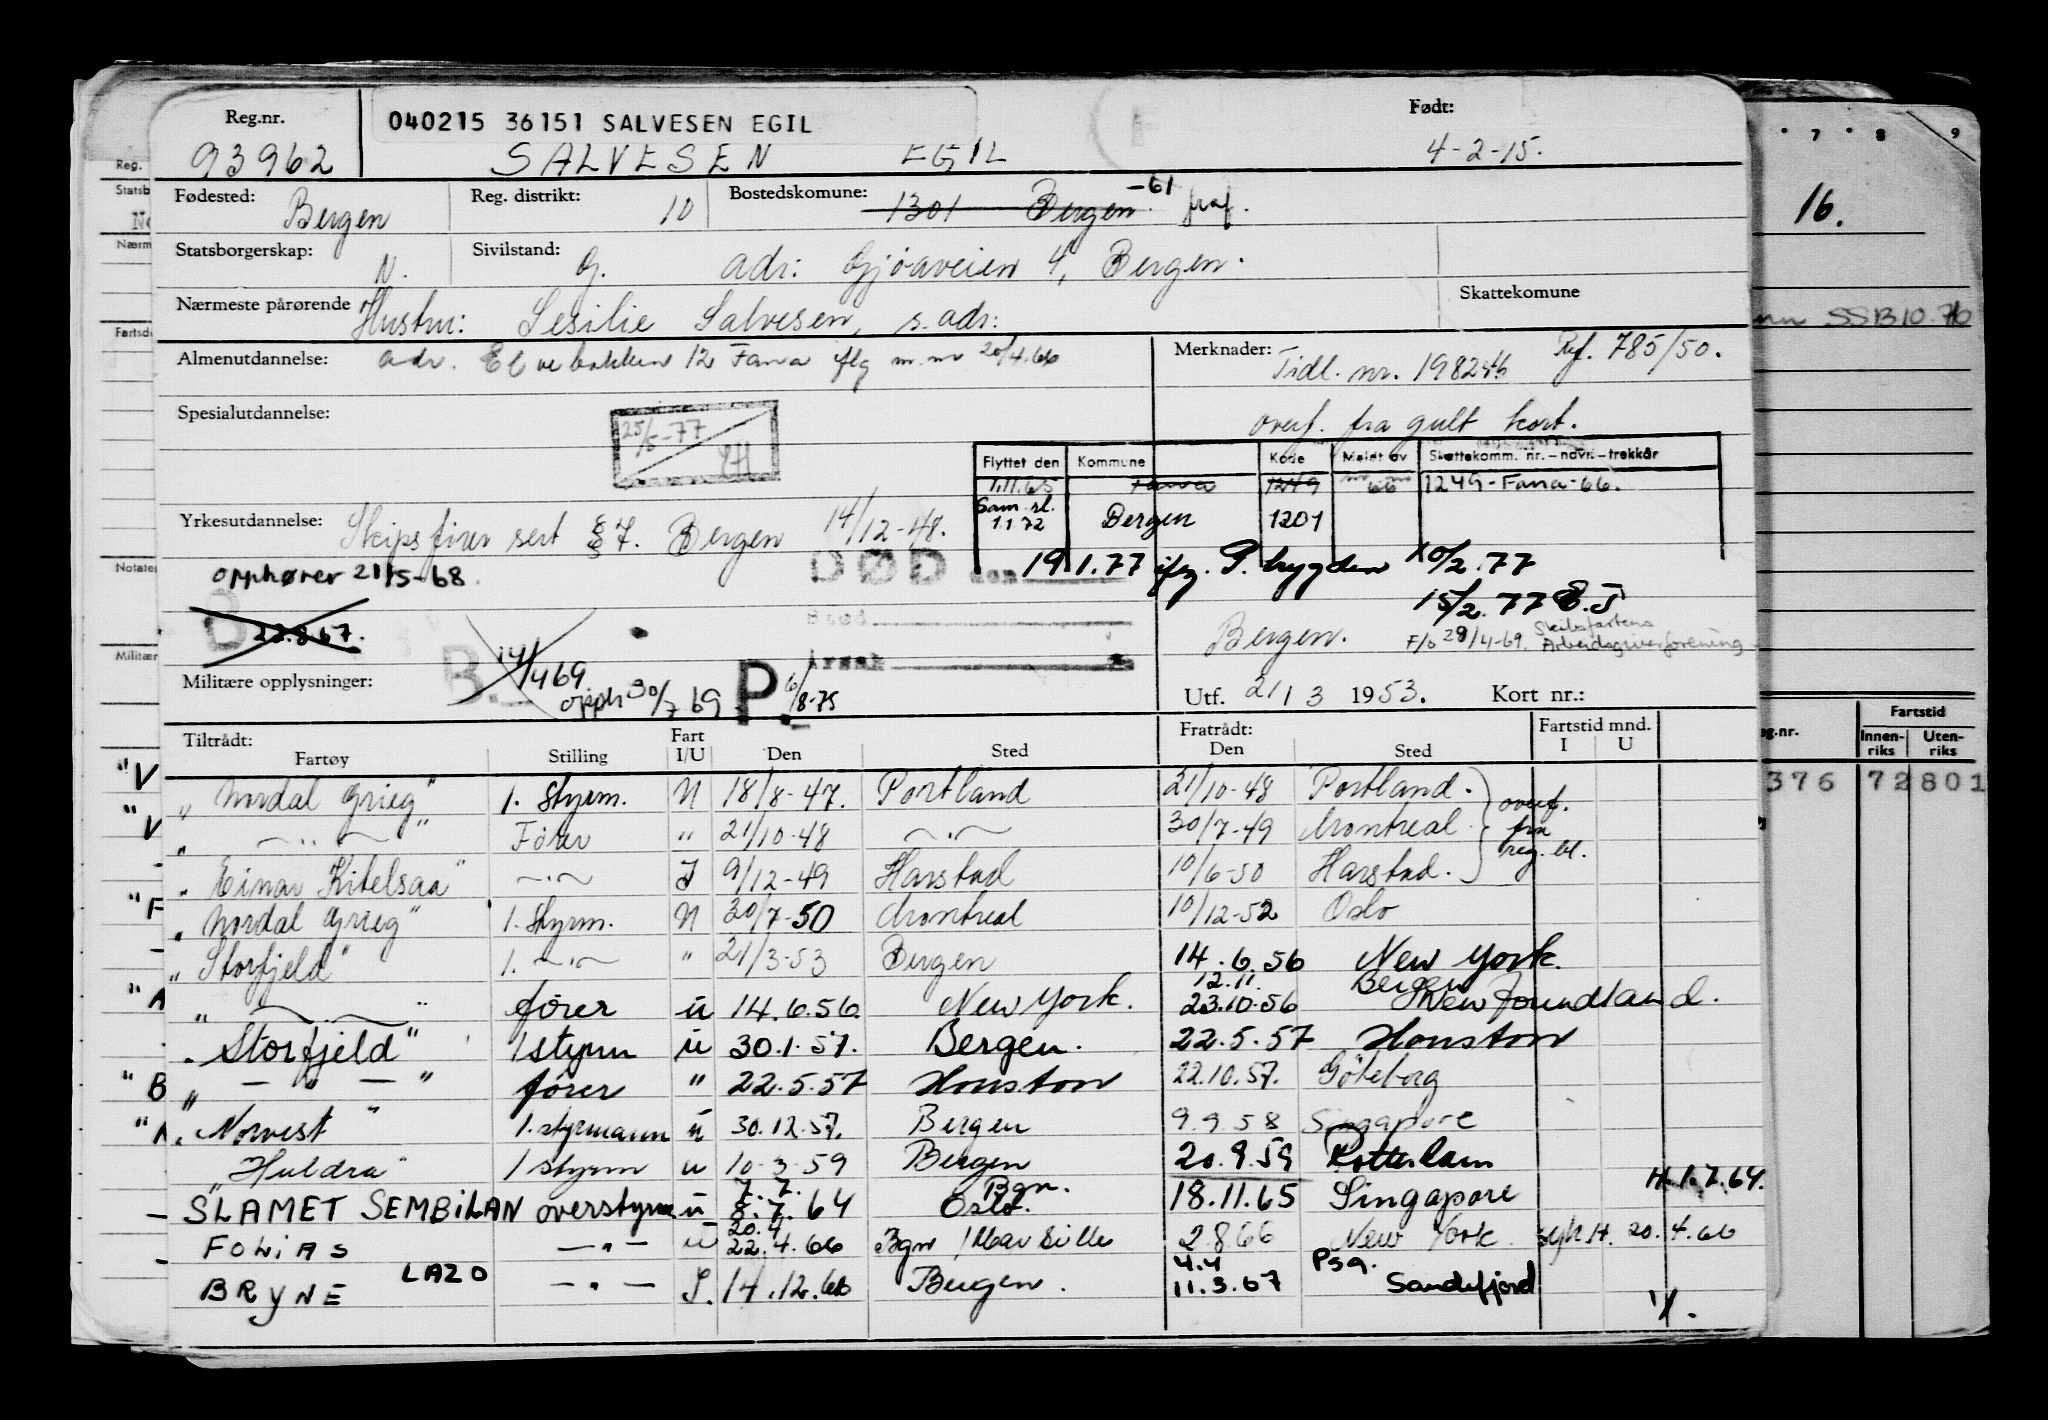 Reg.nr. 040215 36151 SALVESEN EGIL Født:
93962 SALVESEN EGIL 4-2-15.
Fødested: Bergen Reg. distrikt: 10 Bostedskomune: 1301 Bergen -61 fraf.
Statsborgerskap: N. Sivilstand: G. adr: Gjøaveien 4, Bergen.
Nærmeste pårørende Hustru: Sesilie Salvesen, s. adr: Skattekomune
Almenutdannelse: adr. Elvebakken 12 Fana iflg m. nr 20/4.66 Merknader: Tidl. nr. 198246 Ref. 785/50.
Spesialutdannelse: overf. fra gult kort.
25/5-77
Flyttet den Kommune Kode Meldt av Skattekomm. nr. - navn - trekkår
1.11.65 Fana 1249 66 1249-Fana-66.
Sam.sl. 1.1.72 Bergen 1201
Yrkesutdannelse: Skipsfører sert §7. Bergen 14/12-48.
DØD den 19 1.77 ifg. P. trygden 10/2.77
opphører 21/5-68.
15/2.77
23.8.67.
Sted
Bergen. F/o 28/4-69. Skibsfartens Arbeidsgiverforening
Årsak
B. 14/4 69 opph 30/7 69 P. 6/8-75
Militære opplysninger: Utf. 21/3 1953. Kort nr.:
Tiltrådt: Fratrådt: Fartstid mnd.
Fartøy Stilling Fart I/U Den Sted Den Sted I U
"Nordal Grieg" 1. Styrm. N 18/8-47. Portland 21/10-48 Portland. overf. fra reg. bl.
" — " — " Fører " 21/10-48 — " — 30/7-49 Montreal
"Einar Kitelsaa" — " — I 9/12-49 Harstad 10/6-50 Harstad.
"Nordal Grieg" 1. Styrm. N 30/7-50 Montreal 10/12-52 Oslo
"Storfjeld" 1. — " — " 21/3-53 Bergen 14.6.56 New York.
" — " — " fører u 14.6.56 New York. 12.11. Bergen 23.10.56 New foundland.
"Storfjeld" 1 styrm u 30.1.57. Bergen. 22.5.57 Houston
" — " — " fører " 22.5.57 Houston 22.10.57. Göteborg
"Norvest" 1. styrmann u 30.12.57. Bergen 9.9.58 Singapore
"Huldra" 1 styrm u 10.3.59 Bergen 20.9.59 Rotterdam
SLAMET SEMBILAN overstyrm u 7.7. 8.7.64 Bgn. Oslo. 18.11.65 Singapore H. 1.7.64.
FOLIAS — " — u 20.4 22.4.66 Bgn 2.8.66 New York syk H. 20.4.66
BRYNE LAZO — " — I. 14.12.66 Bergen. 4.4 11.3.67 Psg. Sandefjord
7 8 9
16.
SSB 10.76
Fartstid
Innenriks Utenriks
376 72 801
Reg.
Notater
Militær